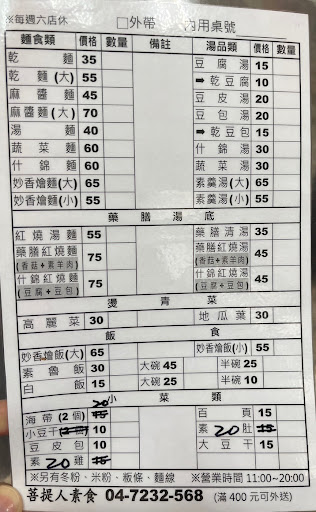 ※每週六店休 □外帶 內用桌號
麵食類 價格 數量 備註 湯品類 價格 數量
乾麵 35 豆腐湯 15
乾麵(大) 55 ➡乾豆腐 10
麻醬麵 45 豆皮湯 20
麻醬麵(大) 70 豆包湯 20
湯麵 40 ➡乾豆包 15
蔬菜麵 60 什錦湯 30
什錦麵 60 蔬菜湯 30
妙香燴麵(大) 65 素羹湯(大) 55
妙香燴麵(小) 55 素羹湯(小) 55
藥膳湯底
紅燒湯麵 55 藥膳清湯 35
藥膳紅燒麵 (香菇+素羊肉) 75 藥膳紅燒湯 (香菇+素羊肉) 45
什錦紅燒麵 (豆腐+豆包) 75 什錦紅燒湯 (豆腐+豆包) 45
燙青菜
高麗菜 30 地瓜葉 30
飯食
妙香燴飯(大) 65 妙香燴飯(小) 55
素魯飯 30 大碗 45 半碗 25
白飯 15 大碗 15 半碗 10
小菜類
海帶(2個) 15 20 百頁 15
小豆干 10 素肚 15 20
豆皮包 10 大豆干 15
素雞 15 20
※另有冬粉、米粉、板條、麵線 ※營業時間 11:00~20:00
菩提人素食 04-7232-568 (滿 400 元可外送)